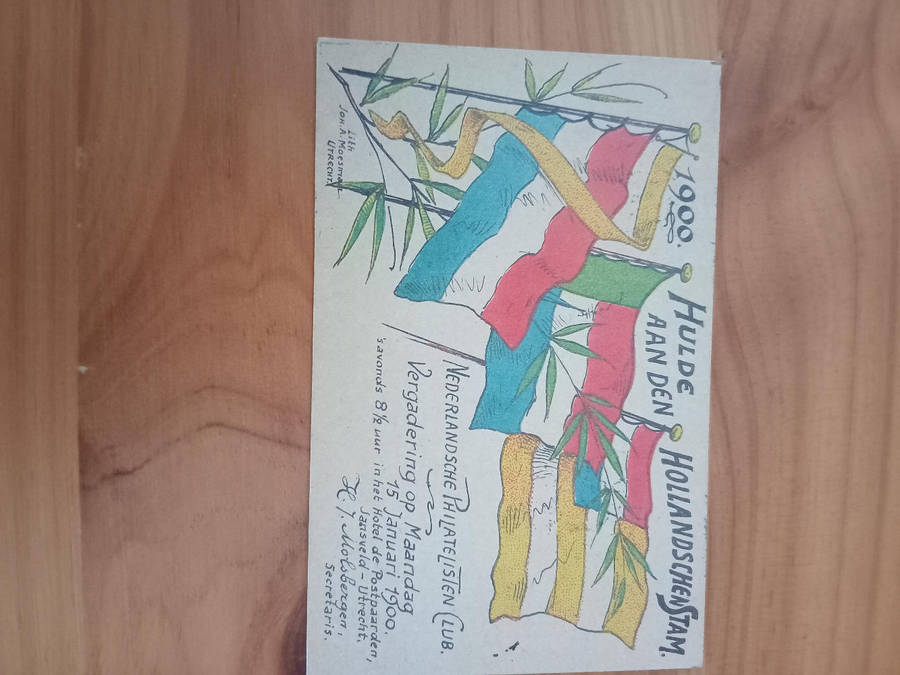 1900. HULDE
AAN DEN HOLLANDSCHEN STAM.
NEDERLANDSCHE PHILATELISTEN CLUB.
Vergadering op Maandag
15 Januari 1900.
's avonds 8½ uur in het Hotel de Postpaarden,
Jansveld - Utrecht.
H. J. Molsbergen,
Secretaris.
Lith
JOH. A. MOESMAN
UTRECHT